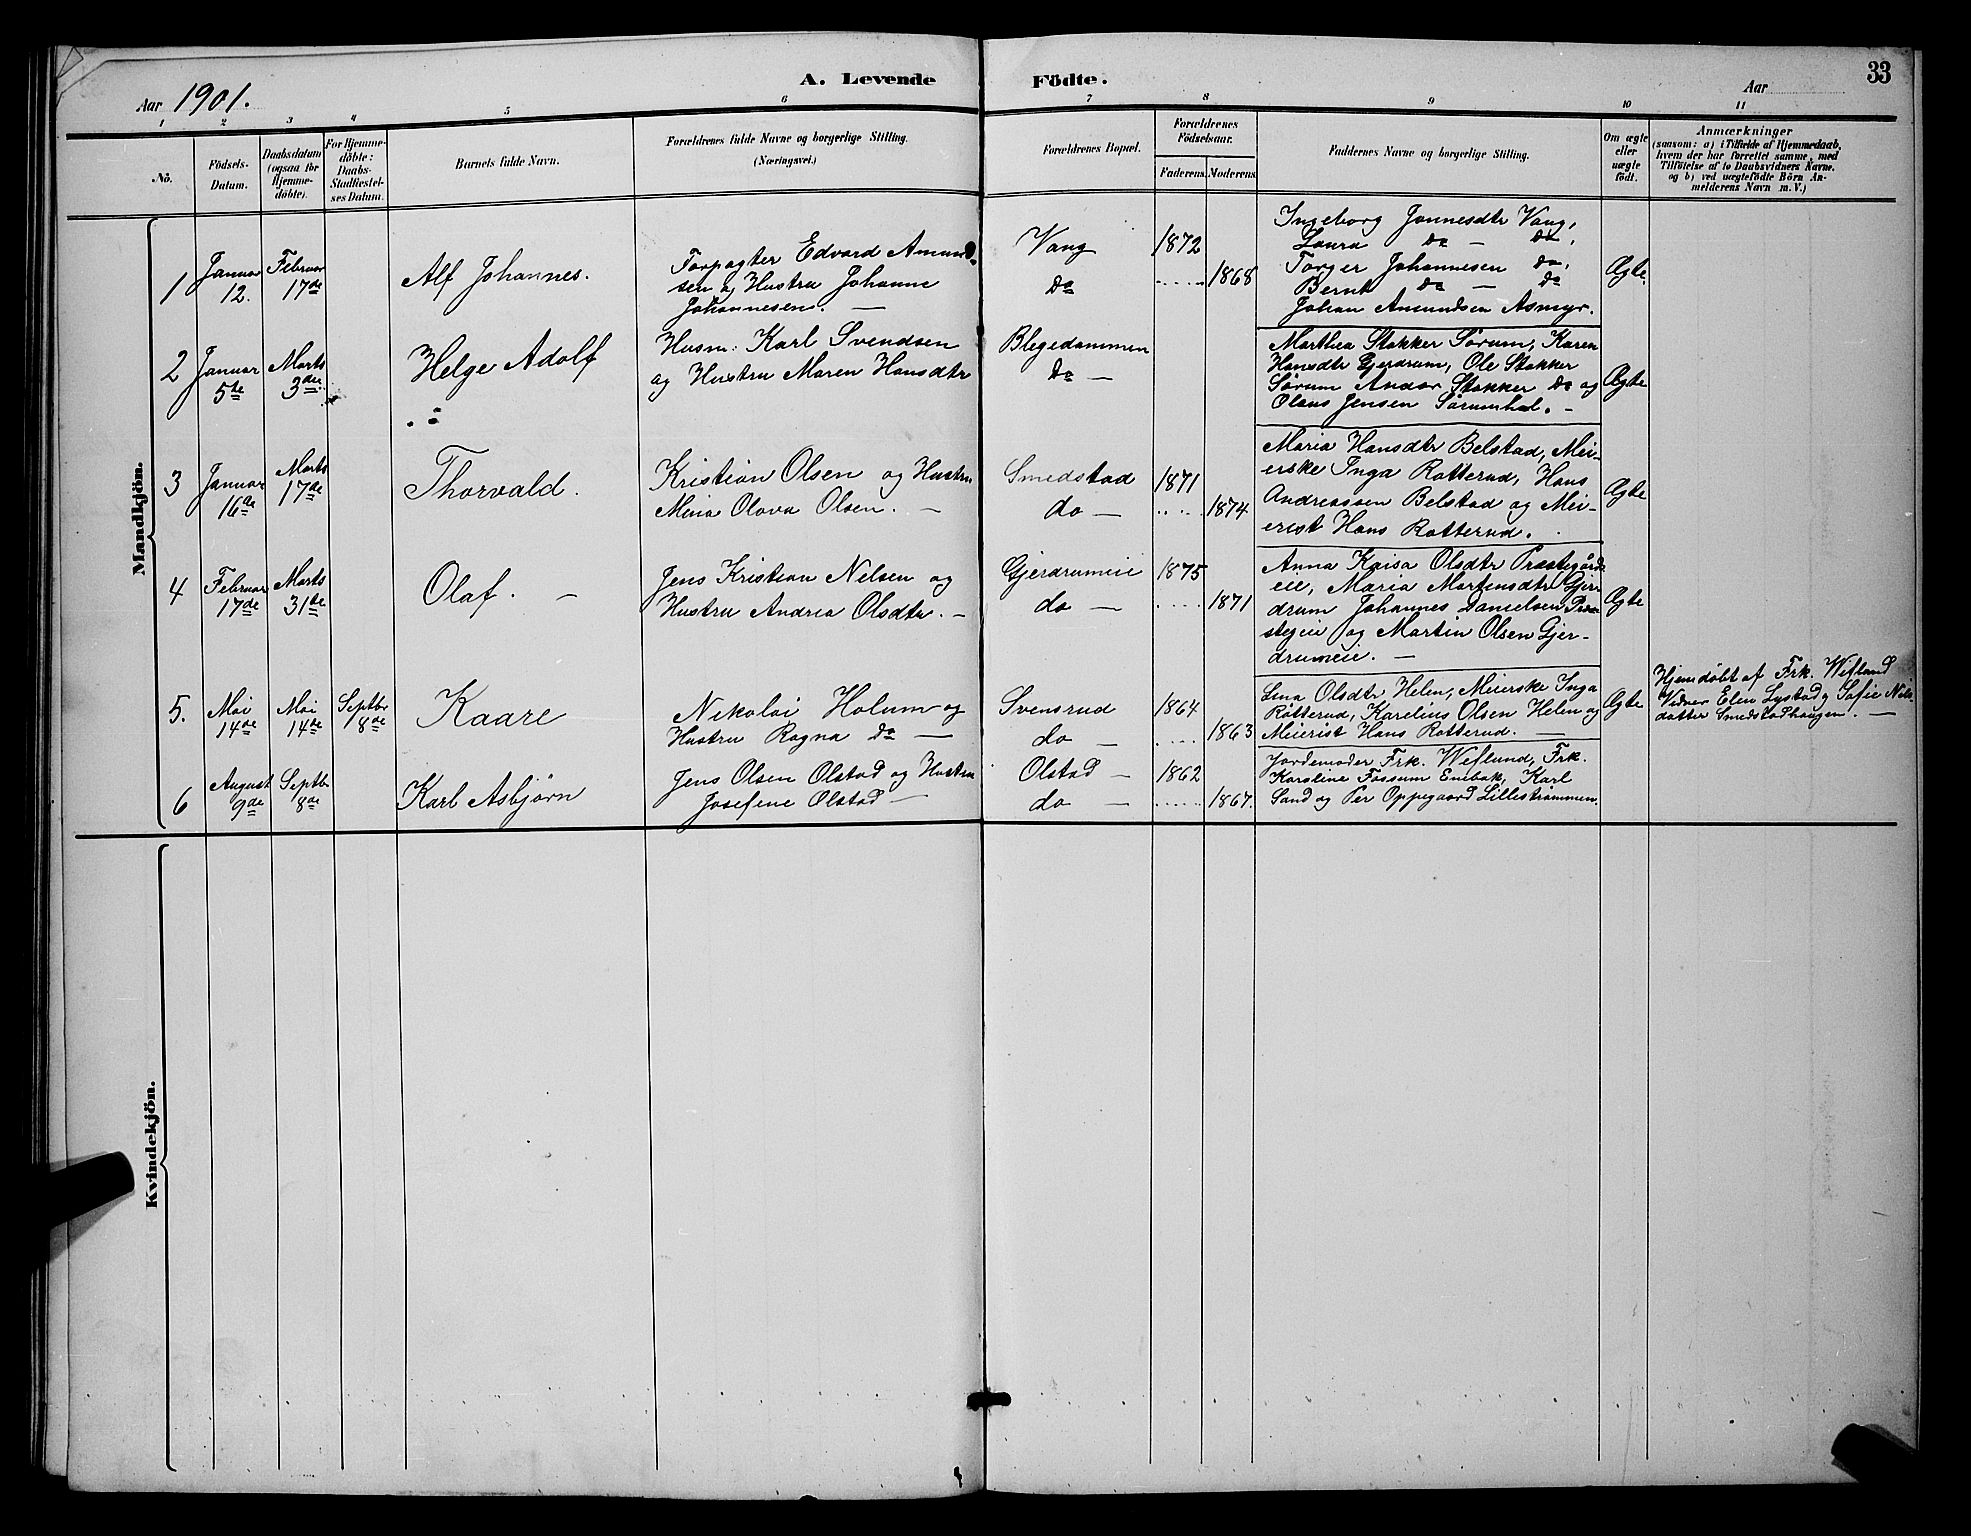 33
A. Levende Födte.
Aar 1901.
Aar
1 2 3 4 5 6 7 8 9 10 11
No.
Födsels-Datum.
Daabsdatum (ogsaa for Hjemme-döbte).
For Hjemme-döbte: Daabs-Stadfæstel-ses Datum.
Barnets fulde Navn.
Forældrenes fulde Navne og borgerlige Stilling. (Næringsvei.)
Forældrenes Bopæl.
Forældrenes Födselsaar.
Faderens. Moderens.
Faddernes Navne og borgerlige Stilling.
Om ægte eller uægte födt.
Anmærkninger
(saasom: a) i Tilfælde af Hjemmedaab,
hvem der har forrettet samme, med
Tilföielse af to Daabsvidners Navne.
og b) ved uægtefödte Börn An-
melderens Navn m. V.)
Mandkjön.
1
Januar 12.
Februar 17de
Alf Johannes.
Forpagter Edvard Amund-
sen og Hustru Johanne
Johannesen. —
Vang
Do
1872
1868
Ingeborg Jonnesdtr Vang,
Laura Do — Do,
Torger Johannesen Do,
Bernt Do — Do
Johan Amundsen Asmyr.
Ægte.
2
Januar 5te
Marts 3die
Helge Adolf
Husm: Karl Svendsen
og Hustru Maren Hansdtr
Blegedammen
Do —
Marthea Stakker Sørum, Karen
Hansdtr Gjerdrum, Ole Stakker
Sørum Andor Stakker Do og
Olaus Jensen Sørumhol. –
Ægte
3
Januar 16de
Marts 17de
Thorvald.
Kristian Olsen og Hustru
Mina Olava Olsen. —
Smedstad
do —
1871
1874
Maria Hansdtr Belstad, Mei-
erske Inga Rotterud, Hans
Andreassen Belstad og Mei-
erist Hans Rotterud.
Ægte
4
Februar 17de
Marts 31te
Olaf. —
Jens Kristian Nelsen og
Hustru Andrea Olsdtr. —
Gjerdrumeie
do —
1875
1871
Anna Kaisa Olsdtr Præstegårds
eie, Maria Martinsdtr Gjer-
drum Johannes Danielsen Præ-
stegeie og Martin Olsen Gjer-
drumeie. —
Ægte
5.
Mai 14de
Mai 14de
Septbr 8de
Kaare
Nikolai Holum og
Hustru Ragna Do —
Svensrud
do —
1864
1863
Lina Olsdtr Helen, Meierske Inga
Rotterud, Karelius Olsen Helen og
Meierist Hans Rotterud. —
Ægte
Hjemdøbt af Frk. Wiflund
Vidner Elen Lystad og Sofie Nils-
datter Smedstadhaugen. —
6
August 9de
Septbr 8de
Karl Asbjørn
Jens Olsen Olstad og Hustru
Josefine Olstad —
Olstad —
do —
1862
1867.
Jordemoder Frk. Wiflund, Frk.
Karoline Fossum Enebak, Karl
Sand og Per Oppegaard Lillestrømmen.
Kvindekjön.